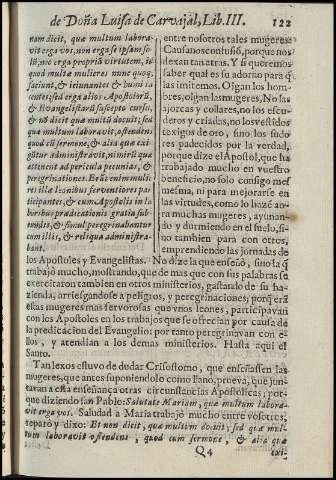 de Doña Luisa de Carvajal, Lib. III. 122
nam dicit, que multum labora-
vit erga vos, non erga se ipsam so-
lũ, nec erga propriã virtutem, id
quod multa mulieres nunc quoq;
faciunt, & ieiunantes & humi ia
centes; sed erga alios Apostolorũ,
& Evangelistarũ suscepto cursu,
& nõ dicit qua multũ docuit; sed
quæ multum laboravit, ostendens
quod cũ sermone, & alia quæ exi-
gitur administravit, nimirũ quæ
attinent ad pericula pecunias, &
peregrinationes. Erãt enim mulie
res illæ leonibus ferventiores par
ticipantes, & cum Apostolis in la
boribus prædicationis gratia sub-
eundis, & simul peregrinabantur
cum illis, & reliqua administra-
bant.
entre nosotros tales mugeres
Causanos confusiõ, porque nos
dexan tan atras. Y si queremos
saber qual es su adorno para q̃
las imitemos. Oigan los hom-
bres, oigan las mugeres, No las
ajorcas y collares, no los escu-
deros y criadas, no los vestidos
texigos de oro, sino los sudo
res padecidos por la verdad,
porque dize el Apostol, que ha
trabajado mucho en vuestro
beneficio, no solo consigo mes
mesma, ni para mejorarse en
las virtudes, como lo hazẽ ao-
ra muchas mugeres, ayunan-
do y durmiendo en el suelo, si-
no tambien para con otros,
emprendiendo las jornadas de
los Apostoles y Evangelistas. No dize la que enseñò, sino la q̃
trabajò mucho, mostrando, que de mas que con sus palabras se
exercitaron tambien en otros ministerios, gastando de su ha-
zienda, arriesgandose a peligros, y peregrinaciones; porq̃ erã
essas mugeres mas fervorosas que vnos leones, participavan
con los Apostoles en los trabajos que se ofrecian por causa de
la predicacion del Evangelio: por tanto peregrinavan con e-
llos, y atendian a los demas ministerios. Hasta aqui el
Santo.
Tan lexos estuvo de dudar Crisostomo, que enseñassen las
mugeres, que antes suponiendolo como llano, prueva, que jun-
tavan a esta enseñança otras circunstancias Apostolicas; por-
que diziendo san Pablo: Salutate Mariam, quæ multum labora-
vit erga vos. Saludad a Maria trabajò mucho entre vosotros,
reparò y dixo: Et non dicit, quæ multum docuit, sed quæ mul-
tum laboravit ostendens, quod cum sermone, & alia quæ
Q4 exi-